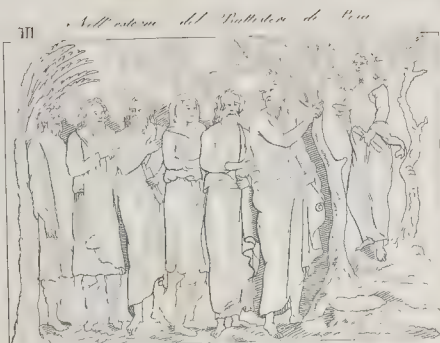 Nell' esterno del Battistero di Pisa
III